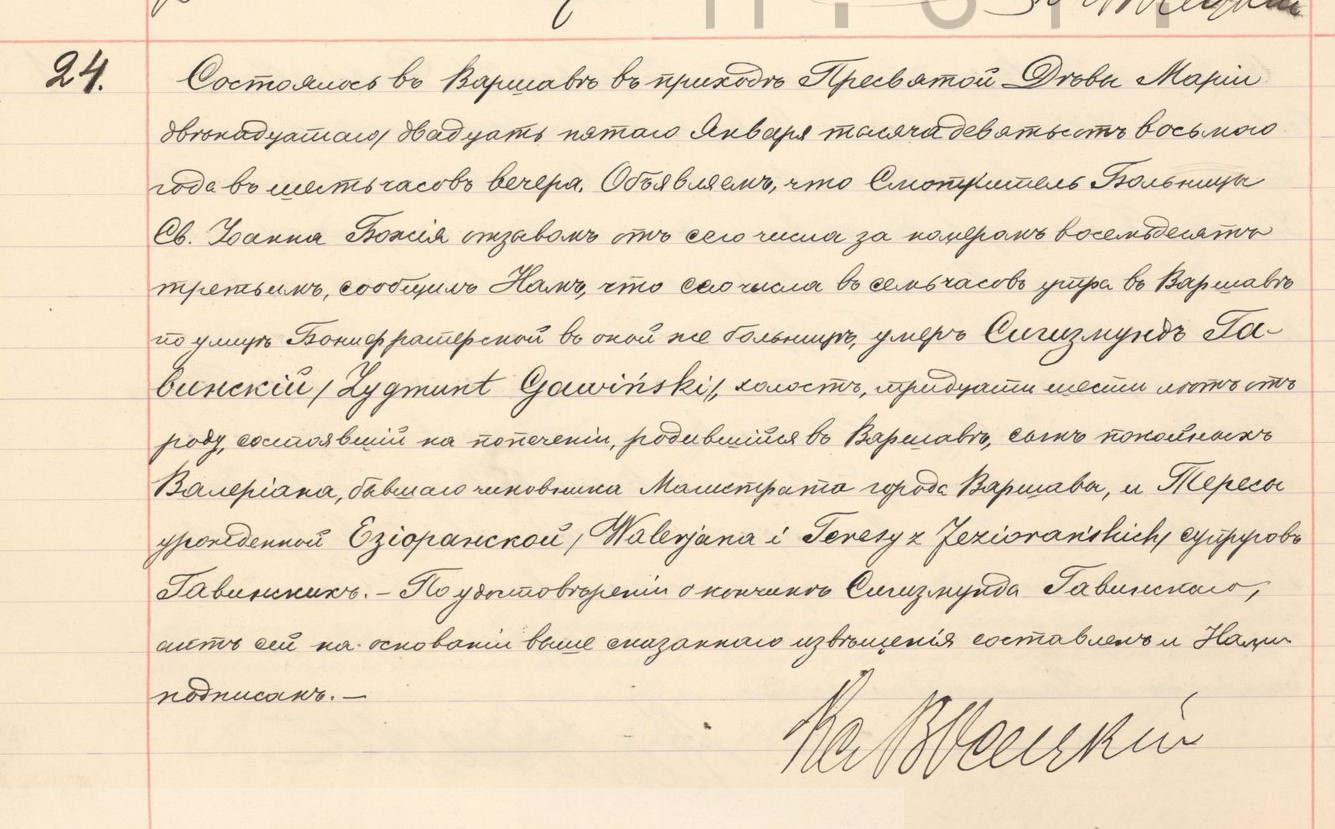 24. Состоялось въ Варшавѣ въ приходѣ Пресвятой Дѣвы Маріи
двѣнадцатаго/двадцать пятаго Января тысяча девятьсотъ восьмого
года въ шесть часовъ вечера. Объявляемъ, что Смотритель Больницы
Св. Іоанна Божія отзывомъ отъ сего числа за номеромъ восемьдесятъ
третьимъ, сообщилъ Намъ, что сего числа въ семь часовъ утра въ Варшавѣ
по улицѣ Бонифратерской въ оной же больницѣ, умеръ Сигизмундъ Га-
винскій /Zygmunt Gawiński/, холостъ, тридцати шести лѣтъ отъ
роду, состоявшій на попеченіи, родившійся въ Варшавѣ, сынъ покойныхъ
Валеріана, бывшаго чиновника Магистрата города Варшавы, и Тересы
урожденной Езіоранской /Walerjana i Teresy z Jeziorańskich/ супруговъ
Гавинскихъ. – По удостовѣреніи о кончинѣ Сигизмунда Гавинскаго,
актъ сей на основаніи выше сказаннаго извѣщенія составленъ и Нами
подписанъ. –
Кс